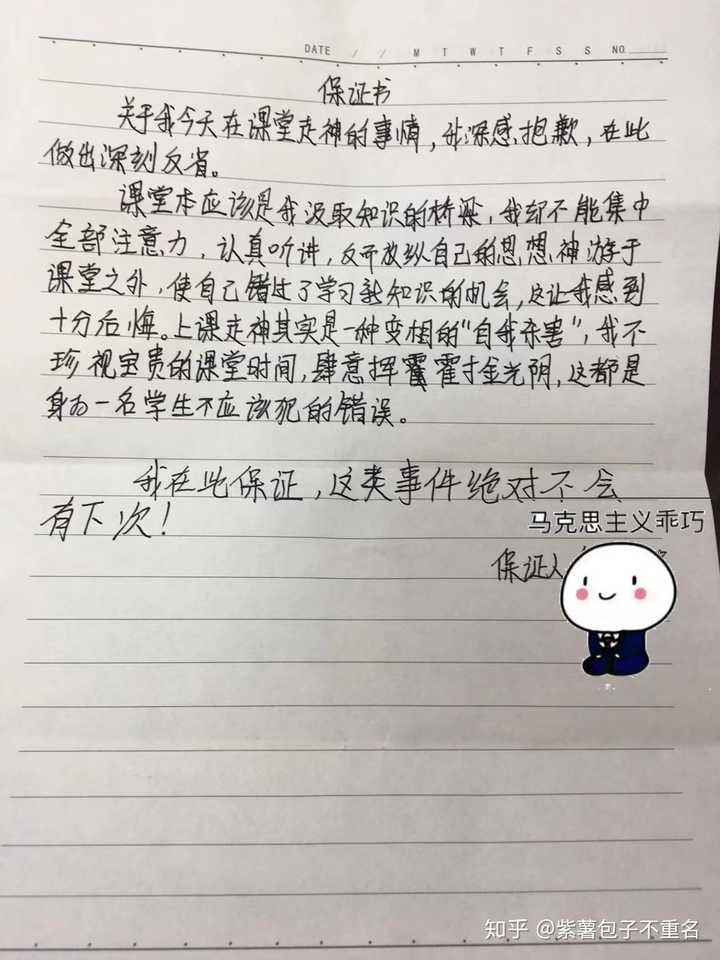 DATE / / M T W T F S S NO
保证书
关于我今天在课堂走神的事情，我深感抱歉，在此
做出深刻反省。
课堂本应该是我汲取知识的桥梁，我却不能集中
全部注意力，认真听讲，反而放纵自己的思想神游于
课堂之外，使自己错过了学习新知识的机会，这让我感到
十分后悔。上课走神其实是一种变相的“自我杀害”，我不
珍视宝贵的课堂时间，肆意挥霍寸金光阴，这都是
身为一名学生不应该犯的错误。
我在此保证，这类事件绝对不会
有下次！
马克思主义乖巧
保证人
知乎 @紫薯包子不重名